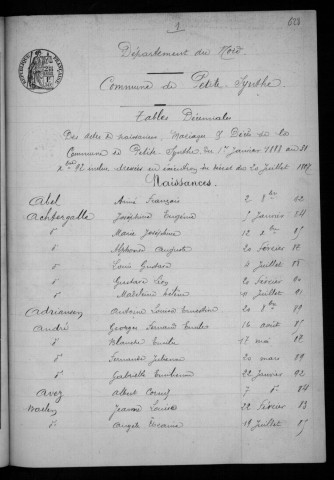 1
Département du Nord
Commune de Petite Synthe
Tables Décennales
Des actes de naissances, Mariages & Décès de la
Commune de Petite Synthe du 1er janvier 1883 au 31
Xbre 92 inclus dressées en exécution du décret du 20 juillet 1807
Naissances.
Abel Aimé François 2 Xbre 92
Achtergalle Joséphine Eugénie 7 janvier 84
d° Marie Joséphine 12 Xbre 85
d° Alphonse Auguste 20 février
d° Louis Gustave 4 juillet 88
d° Gustave Léon 20 février 90
d° Madeleine Hélène 11 juillet 91
Adriansen Antoine Louis Ernestine 20 Xbre 89
André Georges Fernand Emile 16 août 85
d° Blanche Emilie 17 mai
d° Fernande Julienne 20 mars 89
d° Gabrielle Emilienne 22 janvier 92
Avez Albert 7 d° 84
Jeanne Louise 22 février 83
d° Angèle 19 juillet 85